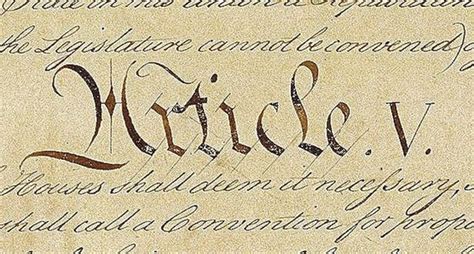 the Legislature cannot be convened)
Article. V.
Houses shall deem it necessary,
shall call a Convention for propo